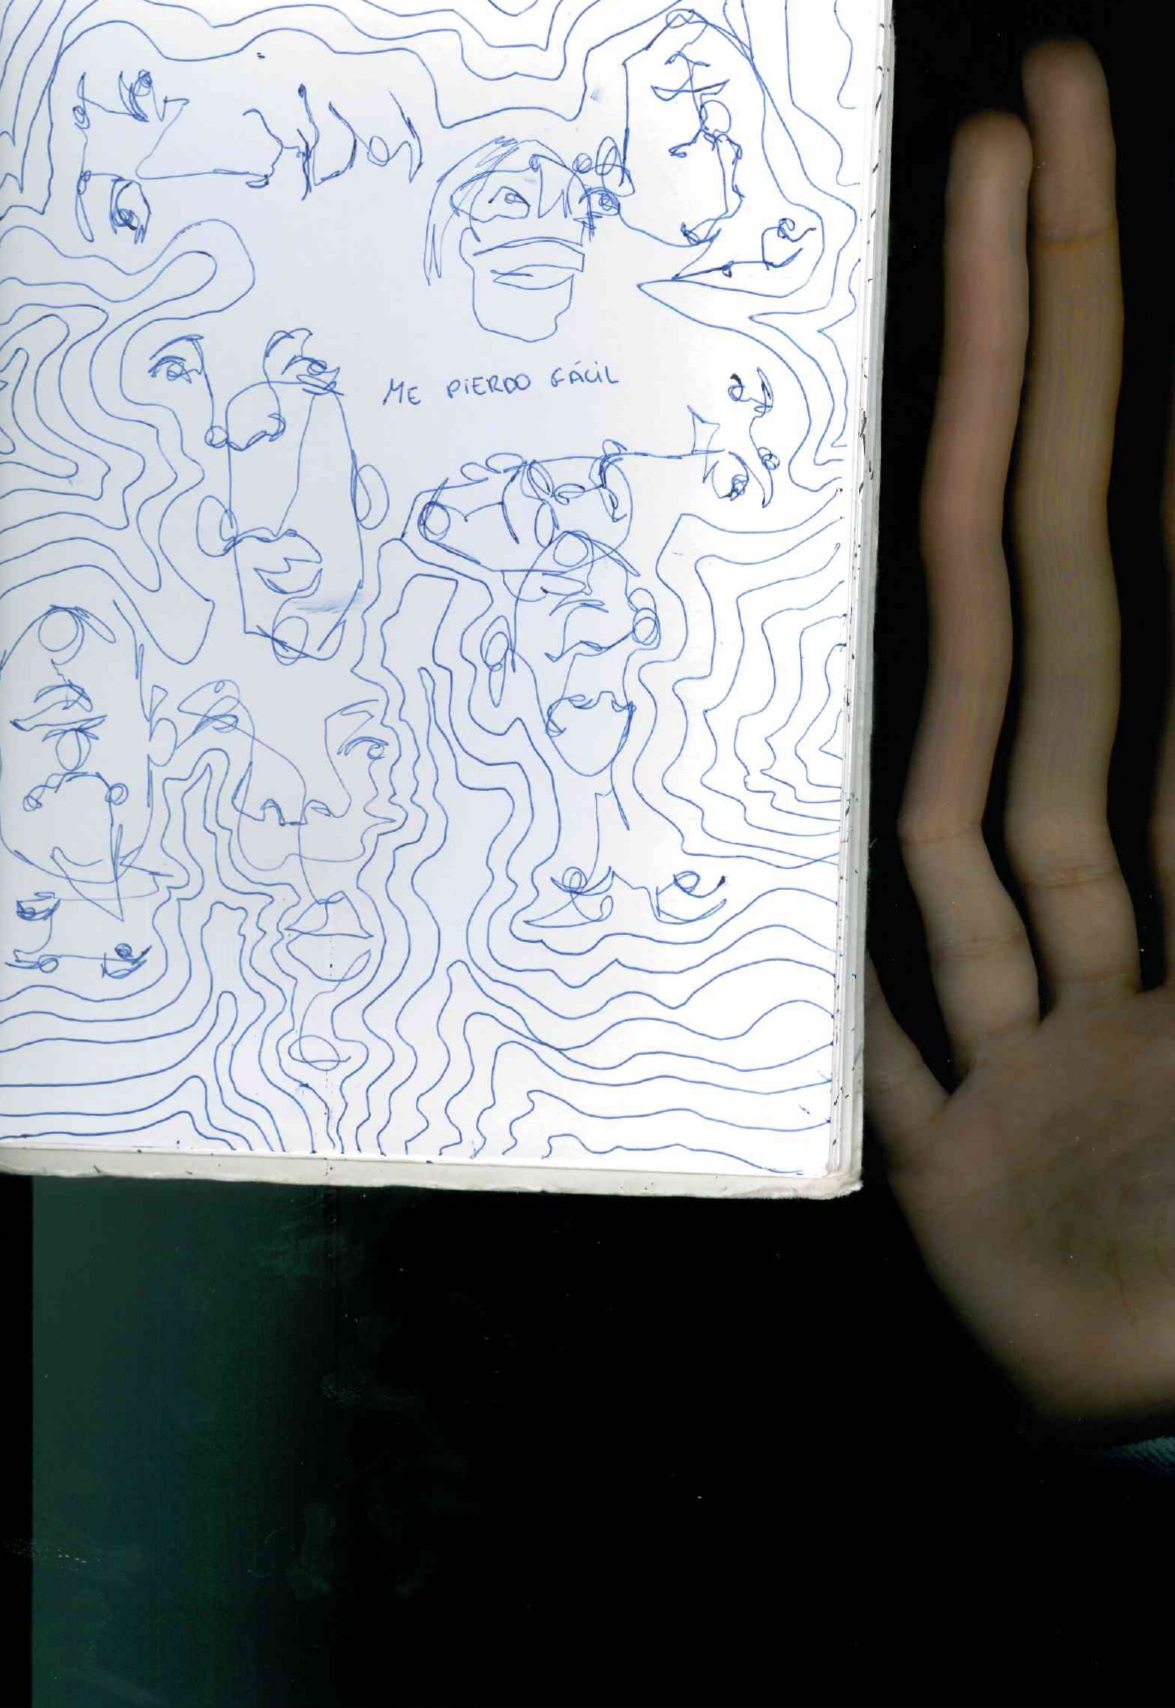 ME PIERDO FÁCIL